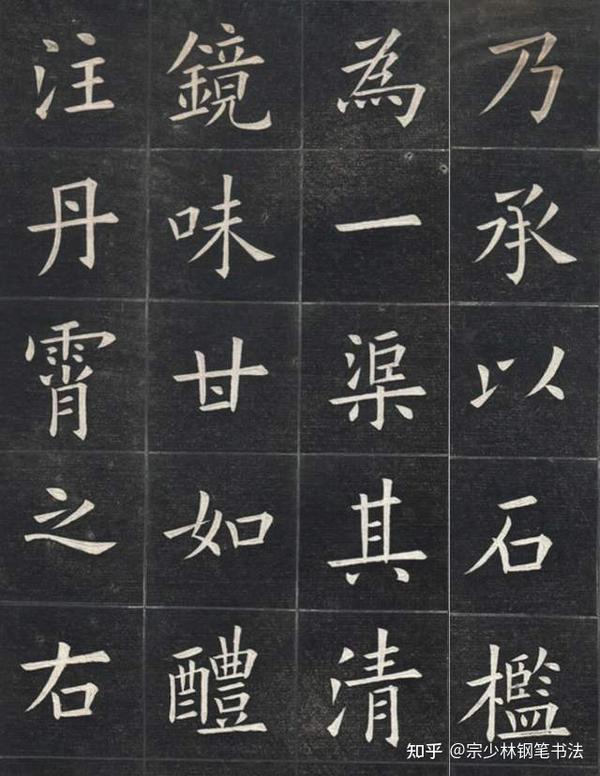 乃承以石檻
為一渠其清
鏡味甘如醴
注丹霄之右
知乎 @宗少林钢笔书法